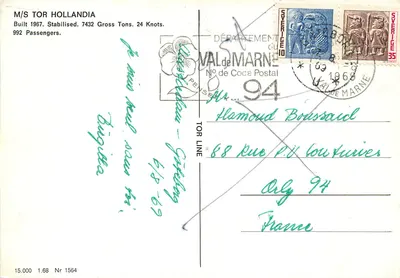 M/S TOR HOLLANDIA
Built 1967. Stabilised. 7432 Gross Tons. 24 Knots.
992 Passengers.
DÉPARTEMENT
DU
VAL de MARNE
N° de Code Postal
94
PENSEZ
SVERIGE
10
SVERIGE
35
1969
VAL DE MARNE
Amsterdam - Göteborg
6/8 - 69
Je suis seul sans toi,
Birgitta
TOR LINE
Mr.
Hamond Boassard
88 Rue P V Couturier
Orly 94
France
15.000 1.68 Nr 1564